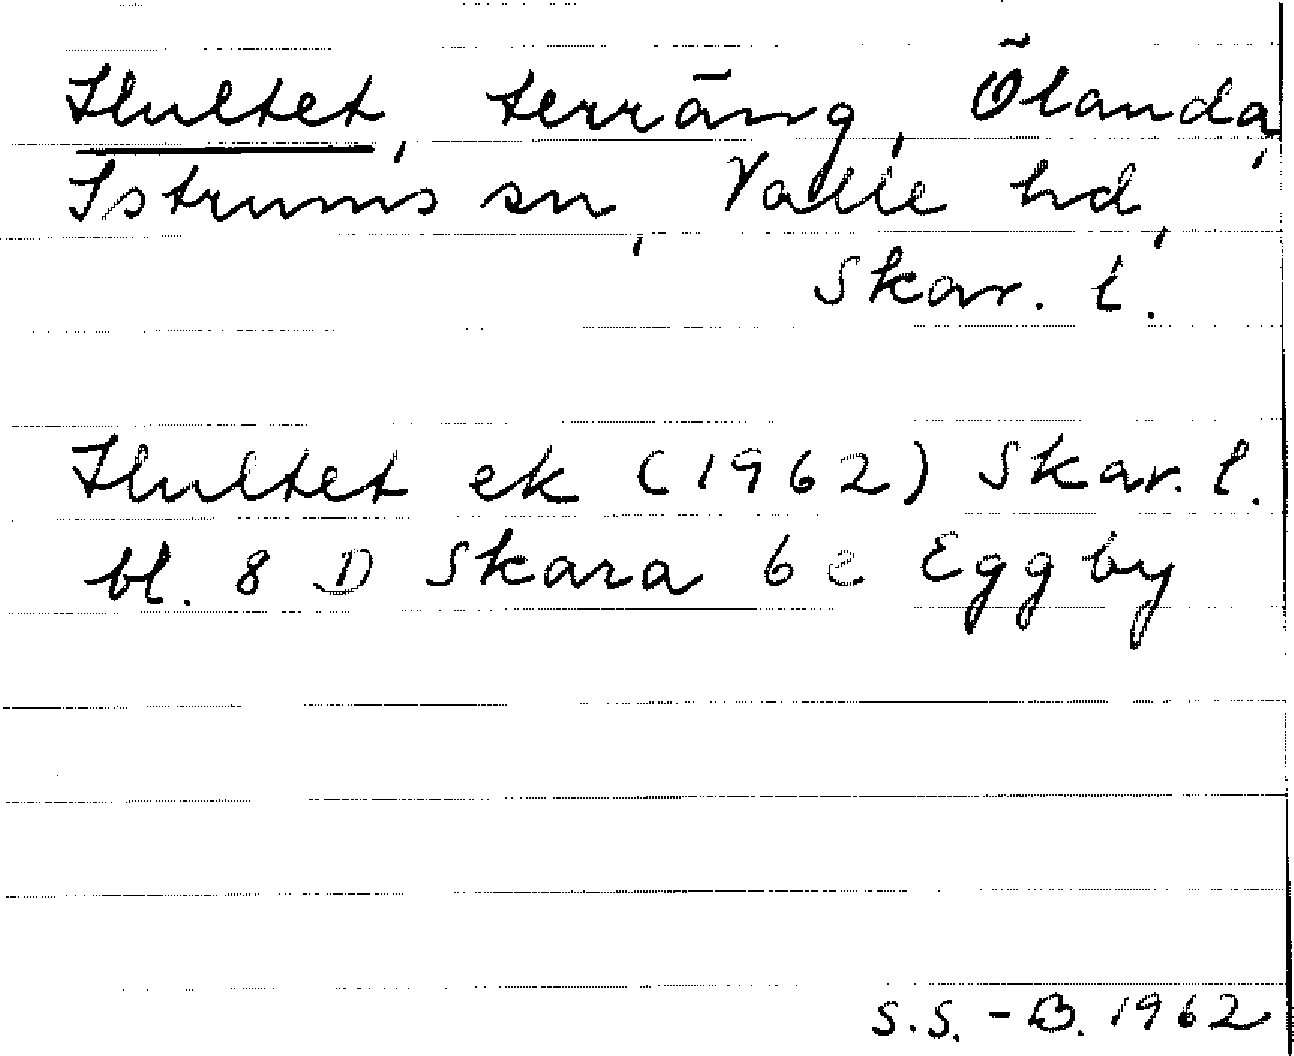 Hultet, terräng, Ölanda,
Istrums sn, Valle hd,
Skar. l.
Hultet ek (1962) Skar. l.
bl. 8 D Skara 6 e Eggby
S.S.-B. 1962